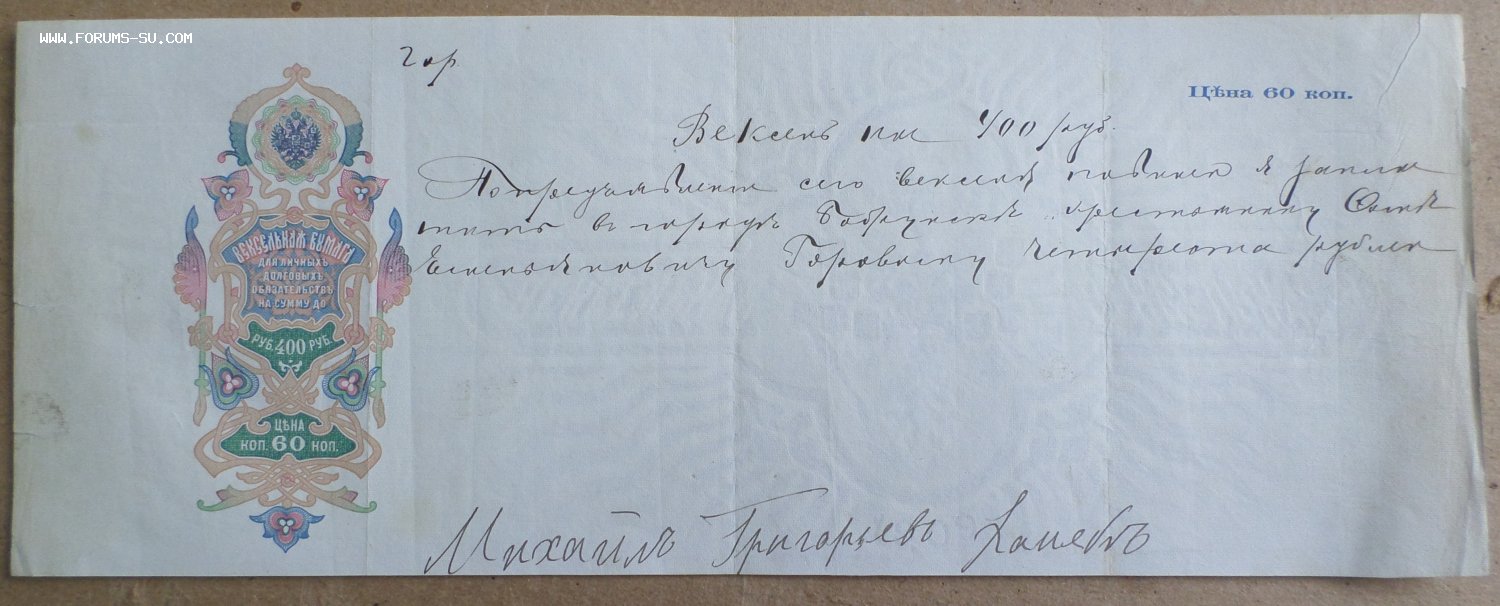 WWW.FORUMS-SU.COM
Гор.
Цѣна 60 коп.
Вексель на 400 руб.
По предъявленiи сего векселя повиненъ я запла
тить въ городѣ Бобруйскѣ крестьянину
Горовому четыреста рублей
ВЕКСЕЛЬНАЯ БУМАГА
ДЛЯ ЛИЧНЫХЪ
ДОЛГОВЫХЪ
ОБЯЗАТЕЛЬСТВЪ
НА СУММУ ДО
РУБ. 400 РУБ.
ЦѢНА
КОП. 60 КОП.
Михаилъ Григорьевъ